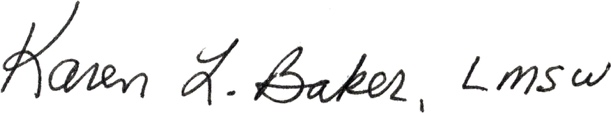 Karen L. Baker, LMSW